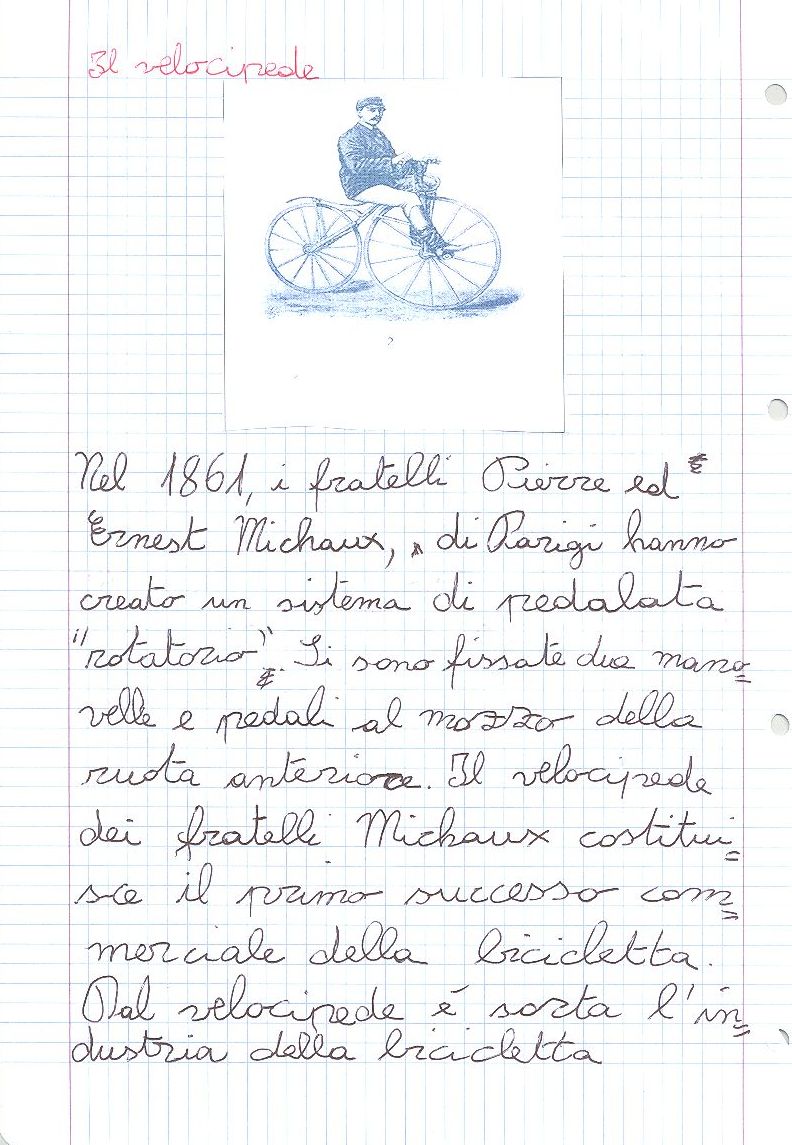 Il velocipede
Nel 1861, i fratelli Pierre ed
Ernest Michaux, di Parigi hanno
creato un sistema di pedalata
"rotatorio". Si sono fissate due mano=
velle e pedali al mozzo della
ruota anteriore. Il velocipede
dei fratelli Michaux costitui=
sce il primo successo com=
merciale della bicicletta.
Dal velocipede é sorta l'in=
dustria della bicicletta